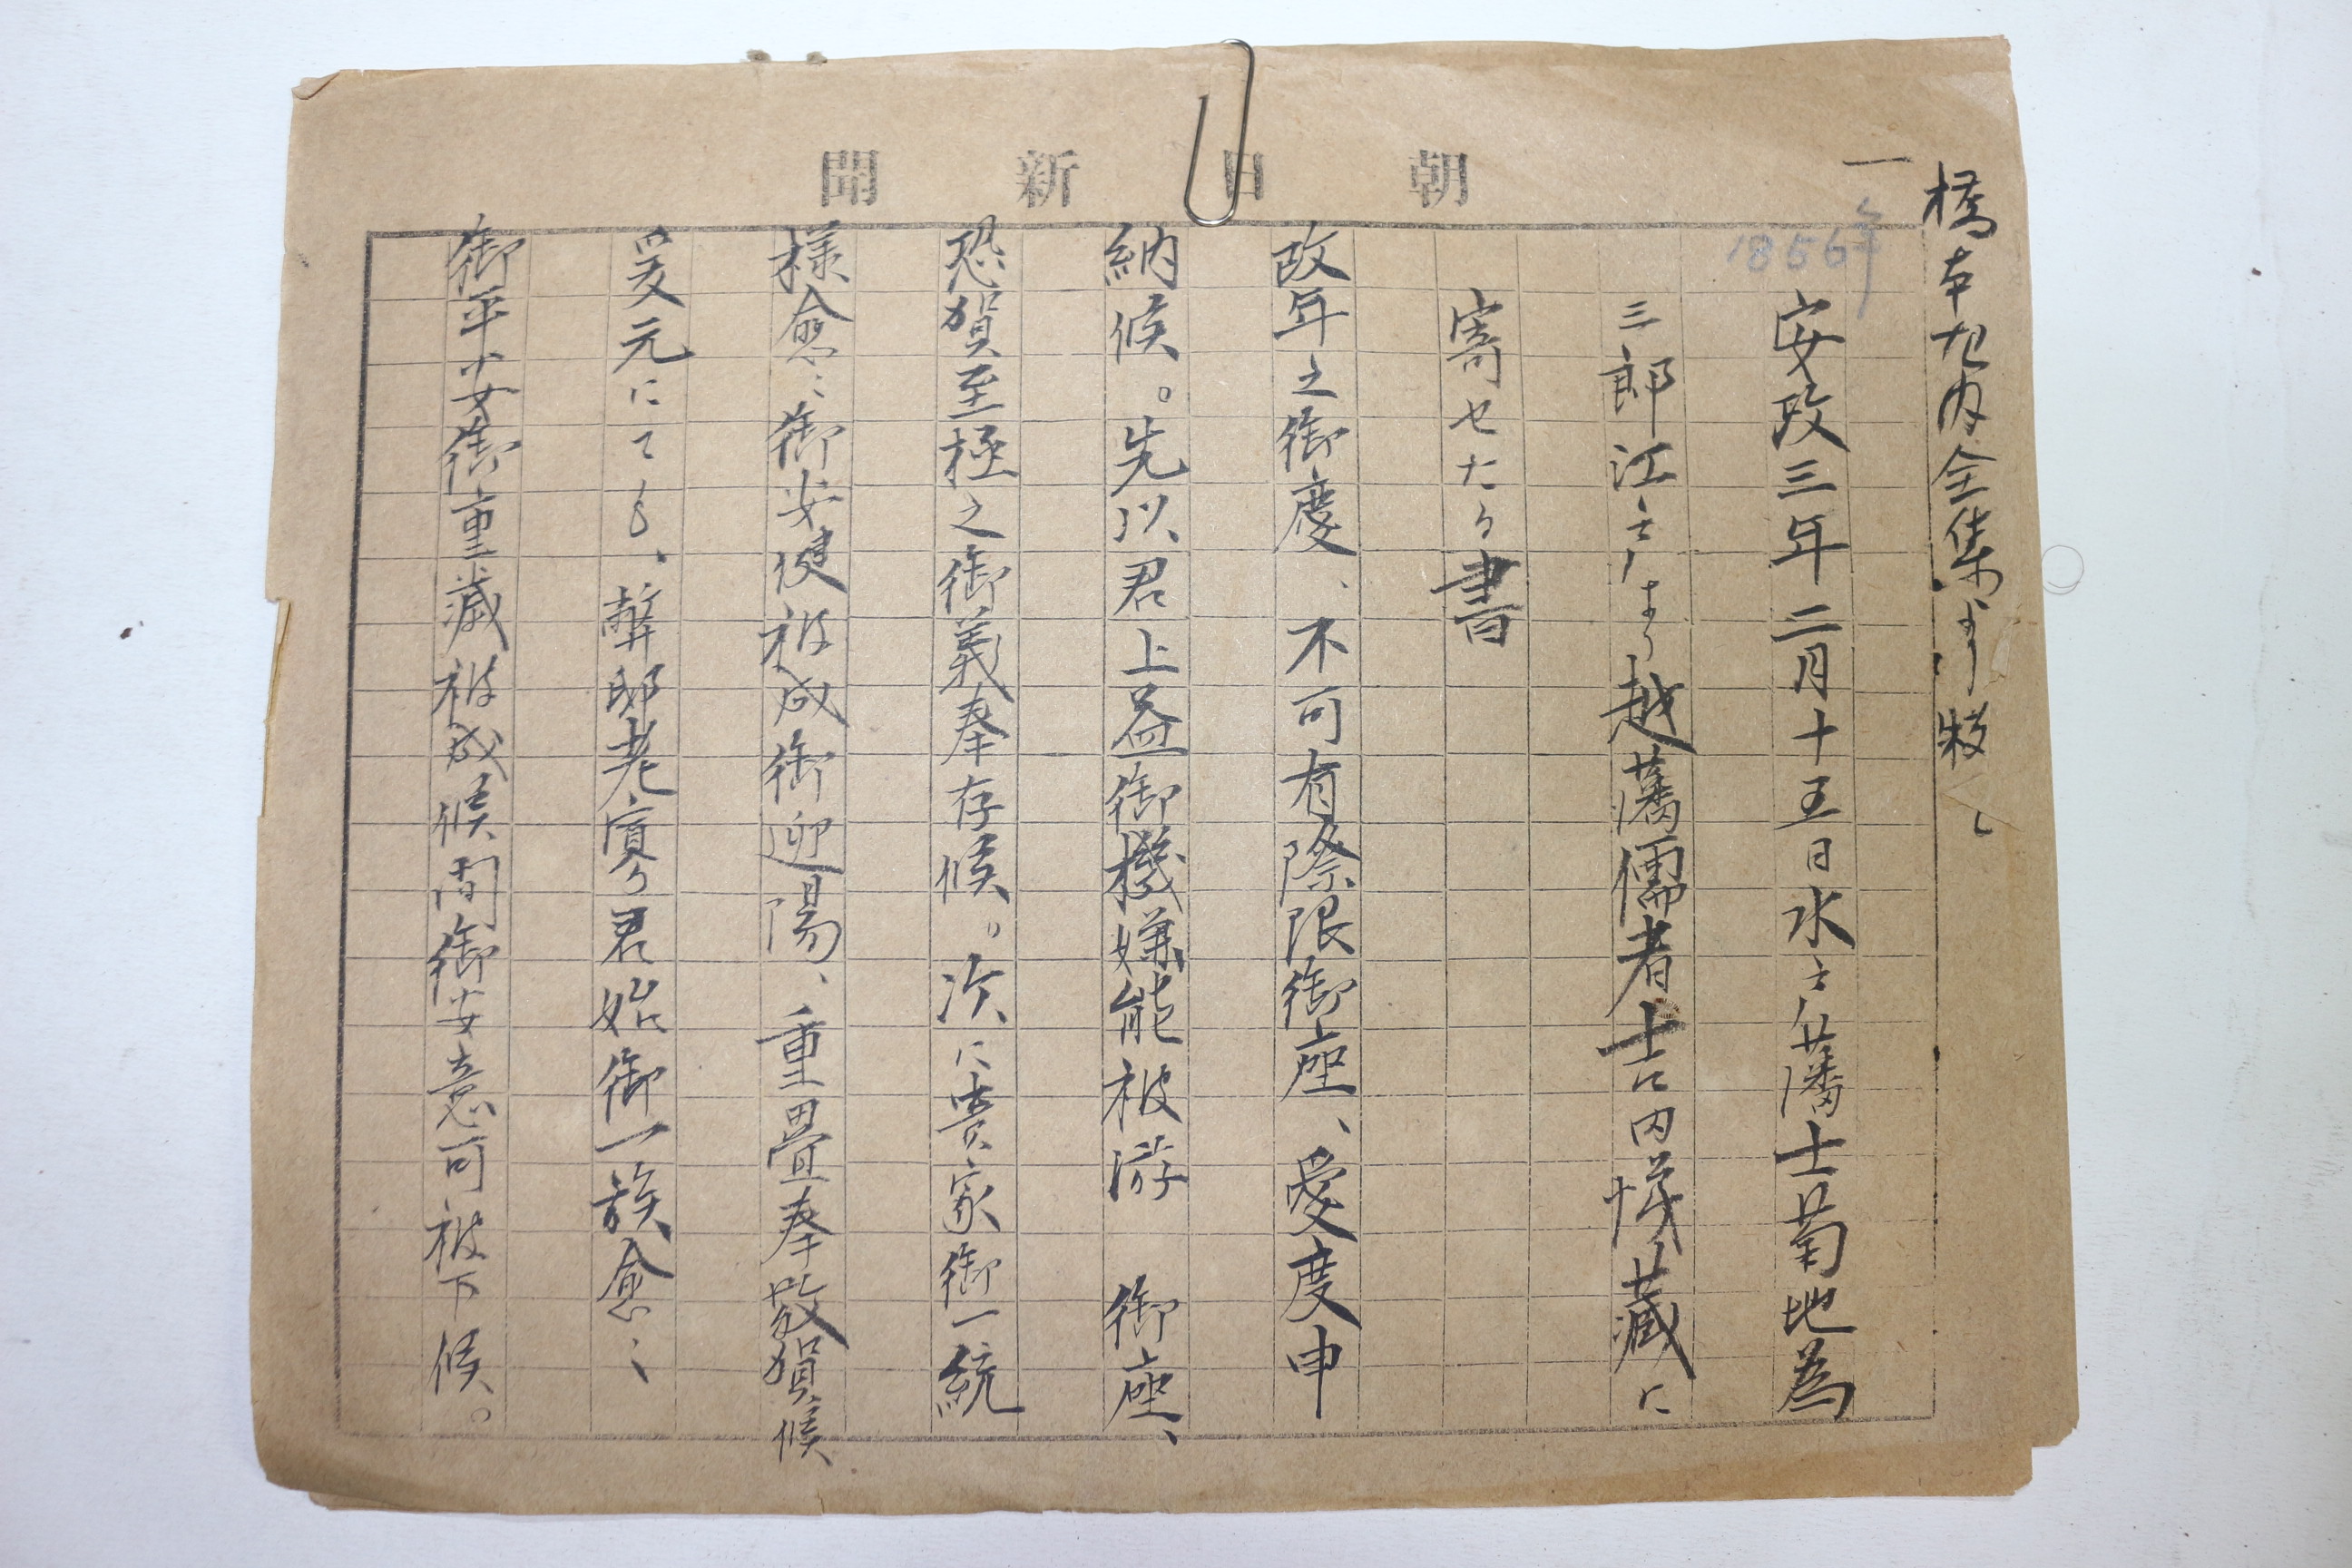 朝日新聞
橋本左内全集より抜く
一
1856年
安政三年二月十五日水戸藩士菊地為
三郎江戸より越藩儒者吉田悌蔵に
寄せたる書
改年之御慶、不可有際限御座、愛度申
納候。先以君上益御機嫌能被游 御座、
恐賀至極之御義奉存候。次に貴家御一統
様愈〻御安健被成御迎陽、重畳奉敬賀候
爰元にても、弊邸老寡君始御一族愈〻
御平安御重歳被成候間御安意可被下候。